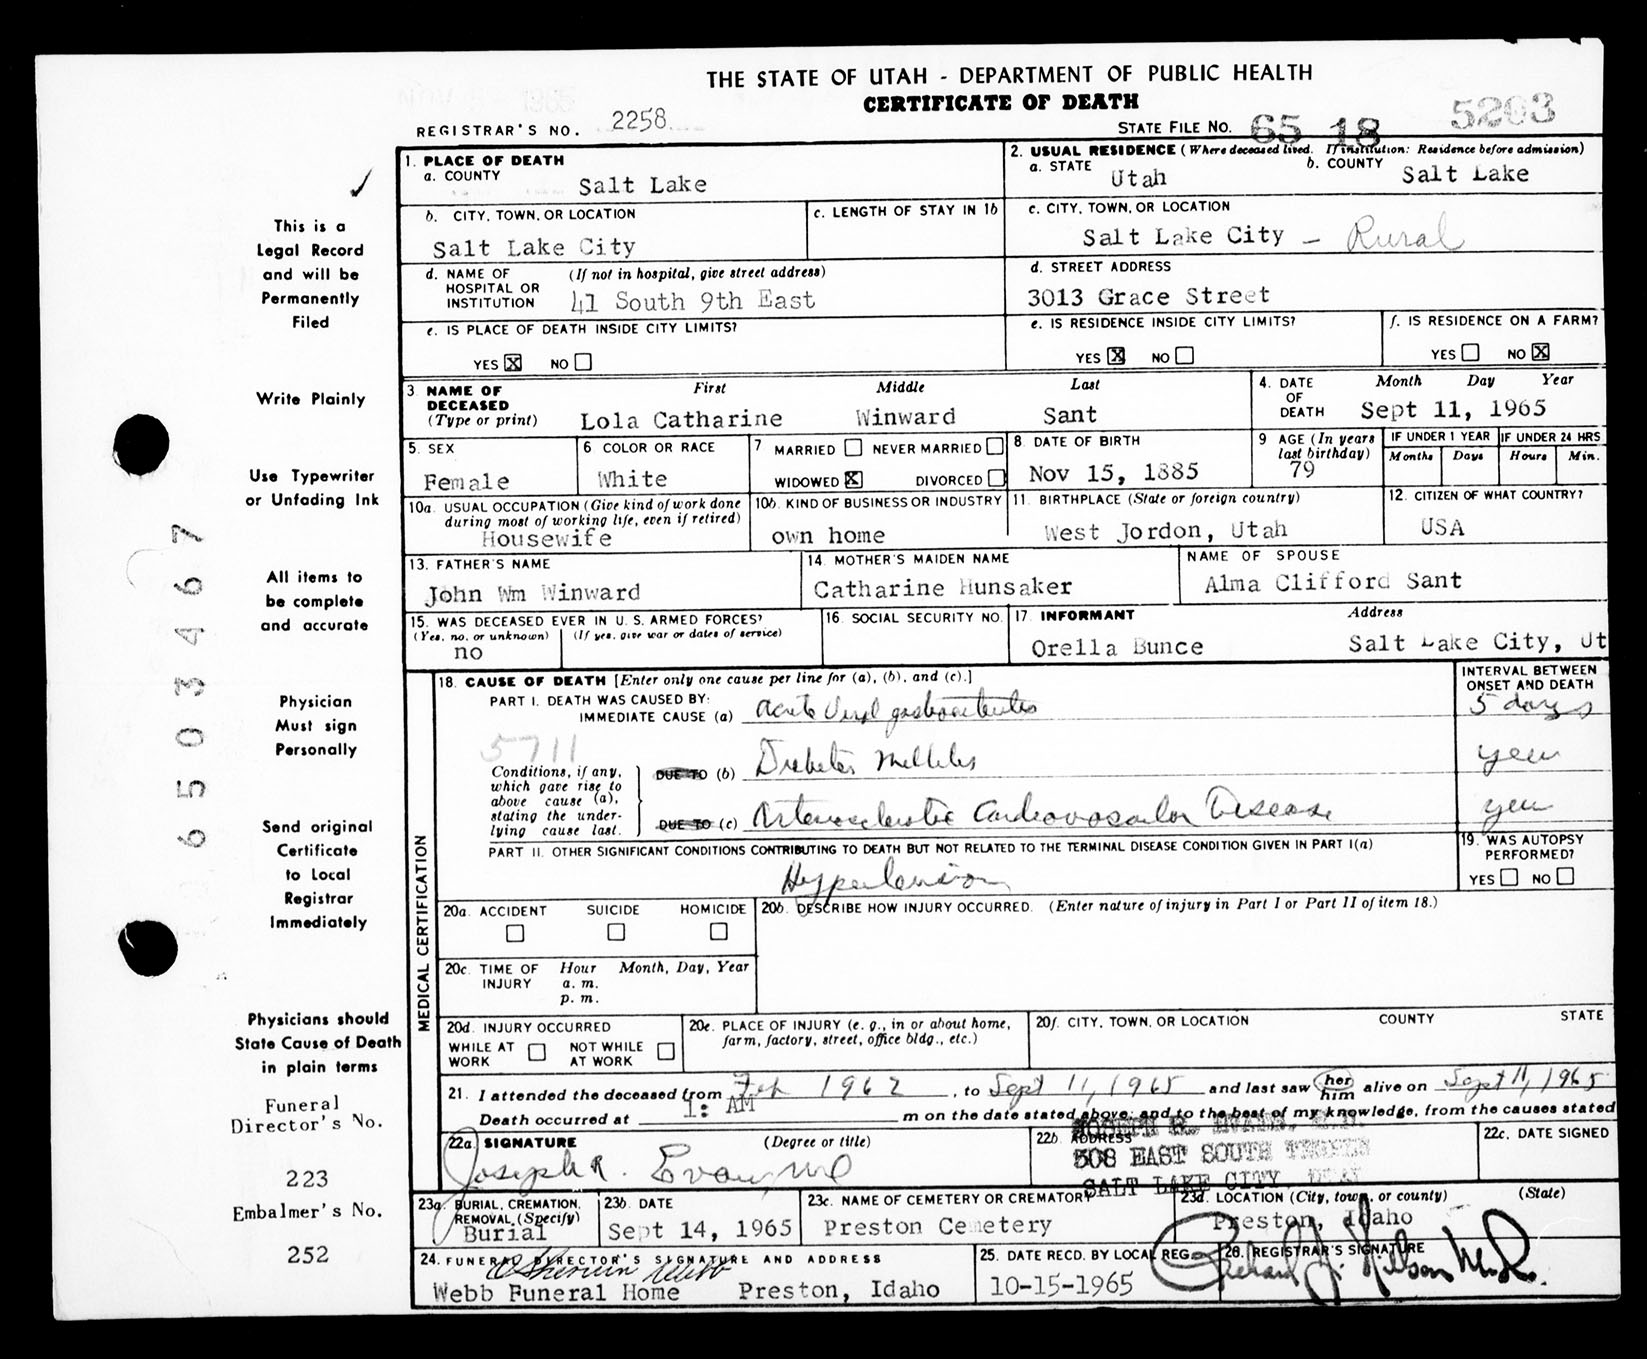 THE STATE OF UTAH - DEPARTMENT OF PUBLIC HEALTH
CERTIFICATE OF DEATH
REGISTRAR'S NO. 2258
STATE FILE NO. 65 18 5203
1. PLACE OF DEATH
a. COUNTY
Salt Lake
2. USUAL RESIDENCE (Where deceased lived. If institution: Residence before admission)
a. STATE Utah
b. COUNTY Salt Lake
b. CITY, TOWN, OR LOCATION
Salt Lake City
c. LENGTH OF STAY IN 1b
c. CITY, TOWN, OR LOCATION
Salt Lake City - Rural
d. NAME OF HOSPITAL OR INSTITUTION (If not in hospital, give street address)
41 South 9th East
d. STREET ADDRESS
3013 Grace Street
e. IS PLACE OF DEATH INSIDE CITY LIMITS?
YES X NO
e. IS RESIDENCE INSIDE CITY LIMITS?
YES X NO
f. IS RESIDENCE ON A FARM?
YES NO X
3. NAME OF DECEASED (Type or print)
First Middle Last
Lola Catharine Winward Sant
4. DATE OF DEATH
Month Day Year
Sept 11, 1965
5. SEX
Female
6 COLOR OR RACE
White
7 MARRIED NEVER MARRIED
WIDOWED X DIVORCED
8 DATE OF BIRTH
Nov 15, 1885
9 AGE (In years last birthday)
79
IF UNDER 1 YEAR
Months Days
IF UNDER 24 HRS
Hours Min.
10a. USUAL OCCUPATION (Give kind of work done during most of working life, even if retired)
Housewife
10b. KIND OF BUSINESS OR INDUSTRY
own home
11. BIRTHPLACE (State or foreign country)
West Jordon, Utah
12. CITIZEN OF WHAT COUNTRY?
USA
13. FATHER'S NAME
John Wm Winward
14. MOTHER'S MAIDEN NAME
Catharine Hunsaker
NAME OF SPOUSE
Alma Clifford Sant
15. WAS DECEASED EVER IN U. S. ARMED FORCES?
(Yes, no, or unknown) (If yes, give war or dates of service)
no
16. SOCIAL SECURITY NO.
17. INFORMANT Address
Orella Bunce Salt Lake City, Ut
MEDICAL CERTIFICATION
18. CAUSE OF DEATH [Enter only one cause per line for (a), (b), and (c).]
INTERVAL BETWEEN ONSET AND DEATH
PART I. DEATH WAS CAUSED BY:
IMMEDIATE CAUSE (a) Acute Viral gastroenteritis
5 days
5711
Conditions, if any, which gave rise to above cause (a), stating the underlying cause last.
DUE TO (b) Diabetes Mellitus
year
DUE TO (c) Arteriosclerotic Cardiovascular Disease
year
PART II. OTHER SIGNIFICANT CONDITIONS CONTRIBUTING TO DEATH BUT NOT RELATED TO THE TERMINAL DISEASE CONDITION GIVEN IN PART I(a)
Hypertension
19. WAS AUTOPSY PERFORMED?
YES NO
20a. ACCIDENT SUICIDE HOMICIDE
20b. DESCRIBE HOW INJURY OCCURRED. (Enter nature of injury in Part I or Part II of item 18.)
20c. TIME OF INJURY Hour Month, Day, Year
a. m.
p. m.
20d. INJURY OCCURRED
WHILE AT WORK NOT WHILE AT WORK
20e. PLACE OF INJURY (e. g., in or about home, farm, factory, street, office bldg., etc.)
20f. CITY, TOWN, OR LOCATION COUNTY STATE
21. I attended the deceased from Feb 1962, to Sept 11, 1965 and last saw her him alive on Sept 11, 1965
Death occurred at 1: AM m on the date stated above; and to the best of my knowledge, from the causes stated
22a. SIGNATURE (Degree or title)
Joseph R. Evans, MD
22b. ADDRESS
JOSEPH R. EVANS, M.D.
508 EAST SOUTH TEMPLE
SALT LAKE CITY, UTAH
22c. DATE SIGNED
23a. BURIAL, CREMATION, REMOVAL, (Specify)
Burial
23b. DATE
Sept 14, 1965
23c. NAME OF CEMETERY OR CREMATORY
Preston Cemetery
23d. LOCATION (City, town, or county) (State)
Preston, Idaho
24. FUNERAL DIRECTOR'S SIGNATURE AND ADDRESS
Webb
Webb Funeral Home Preston, Idaho
25. DATE RECD. BY LOCAL REG.
10-15-1965
26. REGISTRAR'S SIGNATURE
This is a
Legal Record
and will be
Permanently
Filed
Write Plainly
Use Typewriter
or Unfading Ink
All items to
be complete
and accurate
Physician
Must sign
Personally
Send original
Certificate
to Local
Registrar
Immediately
Physicians should
State Cause of Death
in plain terms
Funeral
Director's No.
223
Embalmer's No.
252
6503467